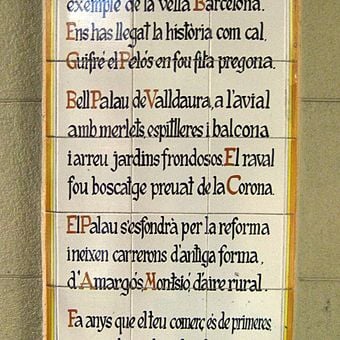 exemple de la vella Barcelona.
Ens has llegat la història com cal.
Guifré el Pelós en fou fita pregona.
Bell Palau de Valldaura, a l'avial
amb merlets, espitlleres i balcona
i arreu jardins frondosos. El raval
fou boscatge preuat de la Corona.
El Palau s'esfondrà per la reforma
i neixen carrerons d'antiga forma,
d'Amargós, Montsió, d'aire rural.
Fa anys que el teu comerç és de primeres